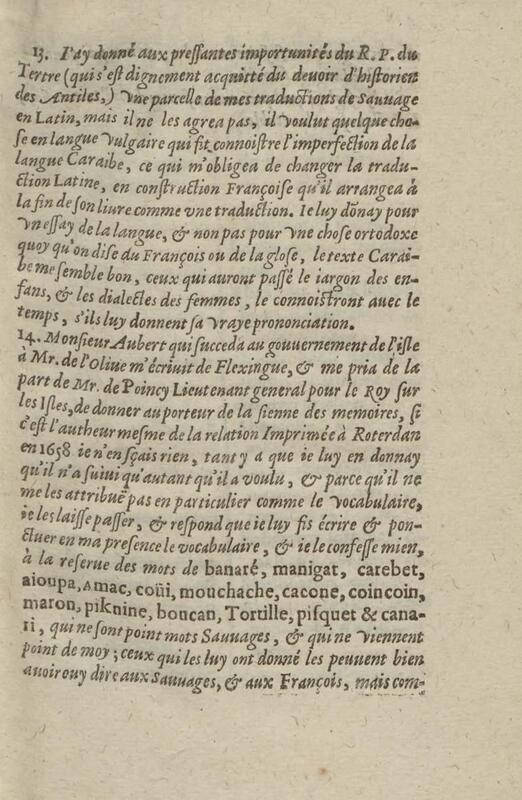 13. I'ay donné aux pressantes importunités du R. P. du
Tertre (qui s'est dignement acquitté du deuoir d'historien
des Antiles,) vne parcelle de mes traductions de Sauuage
en Latin, mais il ne les agrea pas, il voulut quelque cho-
se en langue vulgaire qui fit connoistre l'imperfection de la
langue Caraibe, ce qui m'obligea de changer la tradu-
ction Latine, en construction Françoise qu'il arrangea à
la fin de son liure comme vne traduction. Ie luy dōnay pour
vn essay de la langue, & non pas pour vne chose ortodoxe
quoy qu'on dise du François ou de la glose, le texte Carai-
be me semble bon, ceux qui auront passé le iargon des en-
fans, & les dialectes des femmes, le connoistront auec le
temps, s'ils luy donnent sa vraye prononciation.
14. Monsieur Aubert qui succeda au gouuernement de l'isle
à Mr. de l'Oliue m'écriuit de Flexingue, & me pria de la
part de Mr. de Poincy Lieutenant general pour le Roy sur
les Isles, de donner au porteur de la sienne des memoires, si
c'est l'autheur mesme de la relation Imprimée à Roterdan
en 1658 ie n'en sçais rien, tant y a que ie luy en donnay
qu'il n'a suiui qu'autant qu'il a voulu, & parce qu'il ne
me les attribuë pas en particulier comme le vocabulaire,
ie les laisse passer, & respond que ie luy fis écrire & pon-
ctuer en ma presence le vocabulaire, & ie le confesse mien,
à la reserue des mots de banaré, manigat, carebet,
aioupa, Amac, coüi, mouchache, cacone, coincoin,
maron, piknine, boucan, Tortille, pisquet & cana-
ri, qui ne sont point mots Sauuages, & qui ne viennent
point de moy; ceux qui les luy ont donné les peuuent bien
auoir ouy dire aux Sauuages, & aux François, mais com-